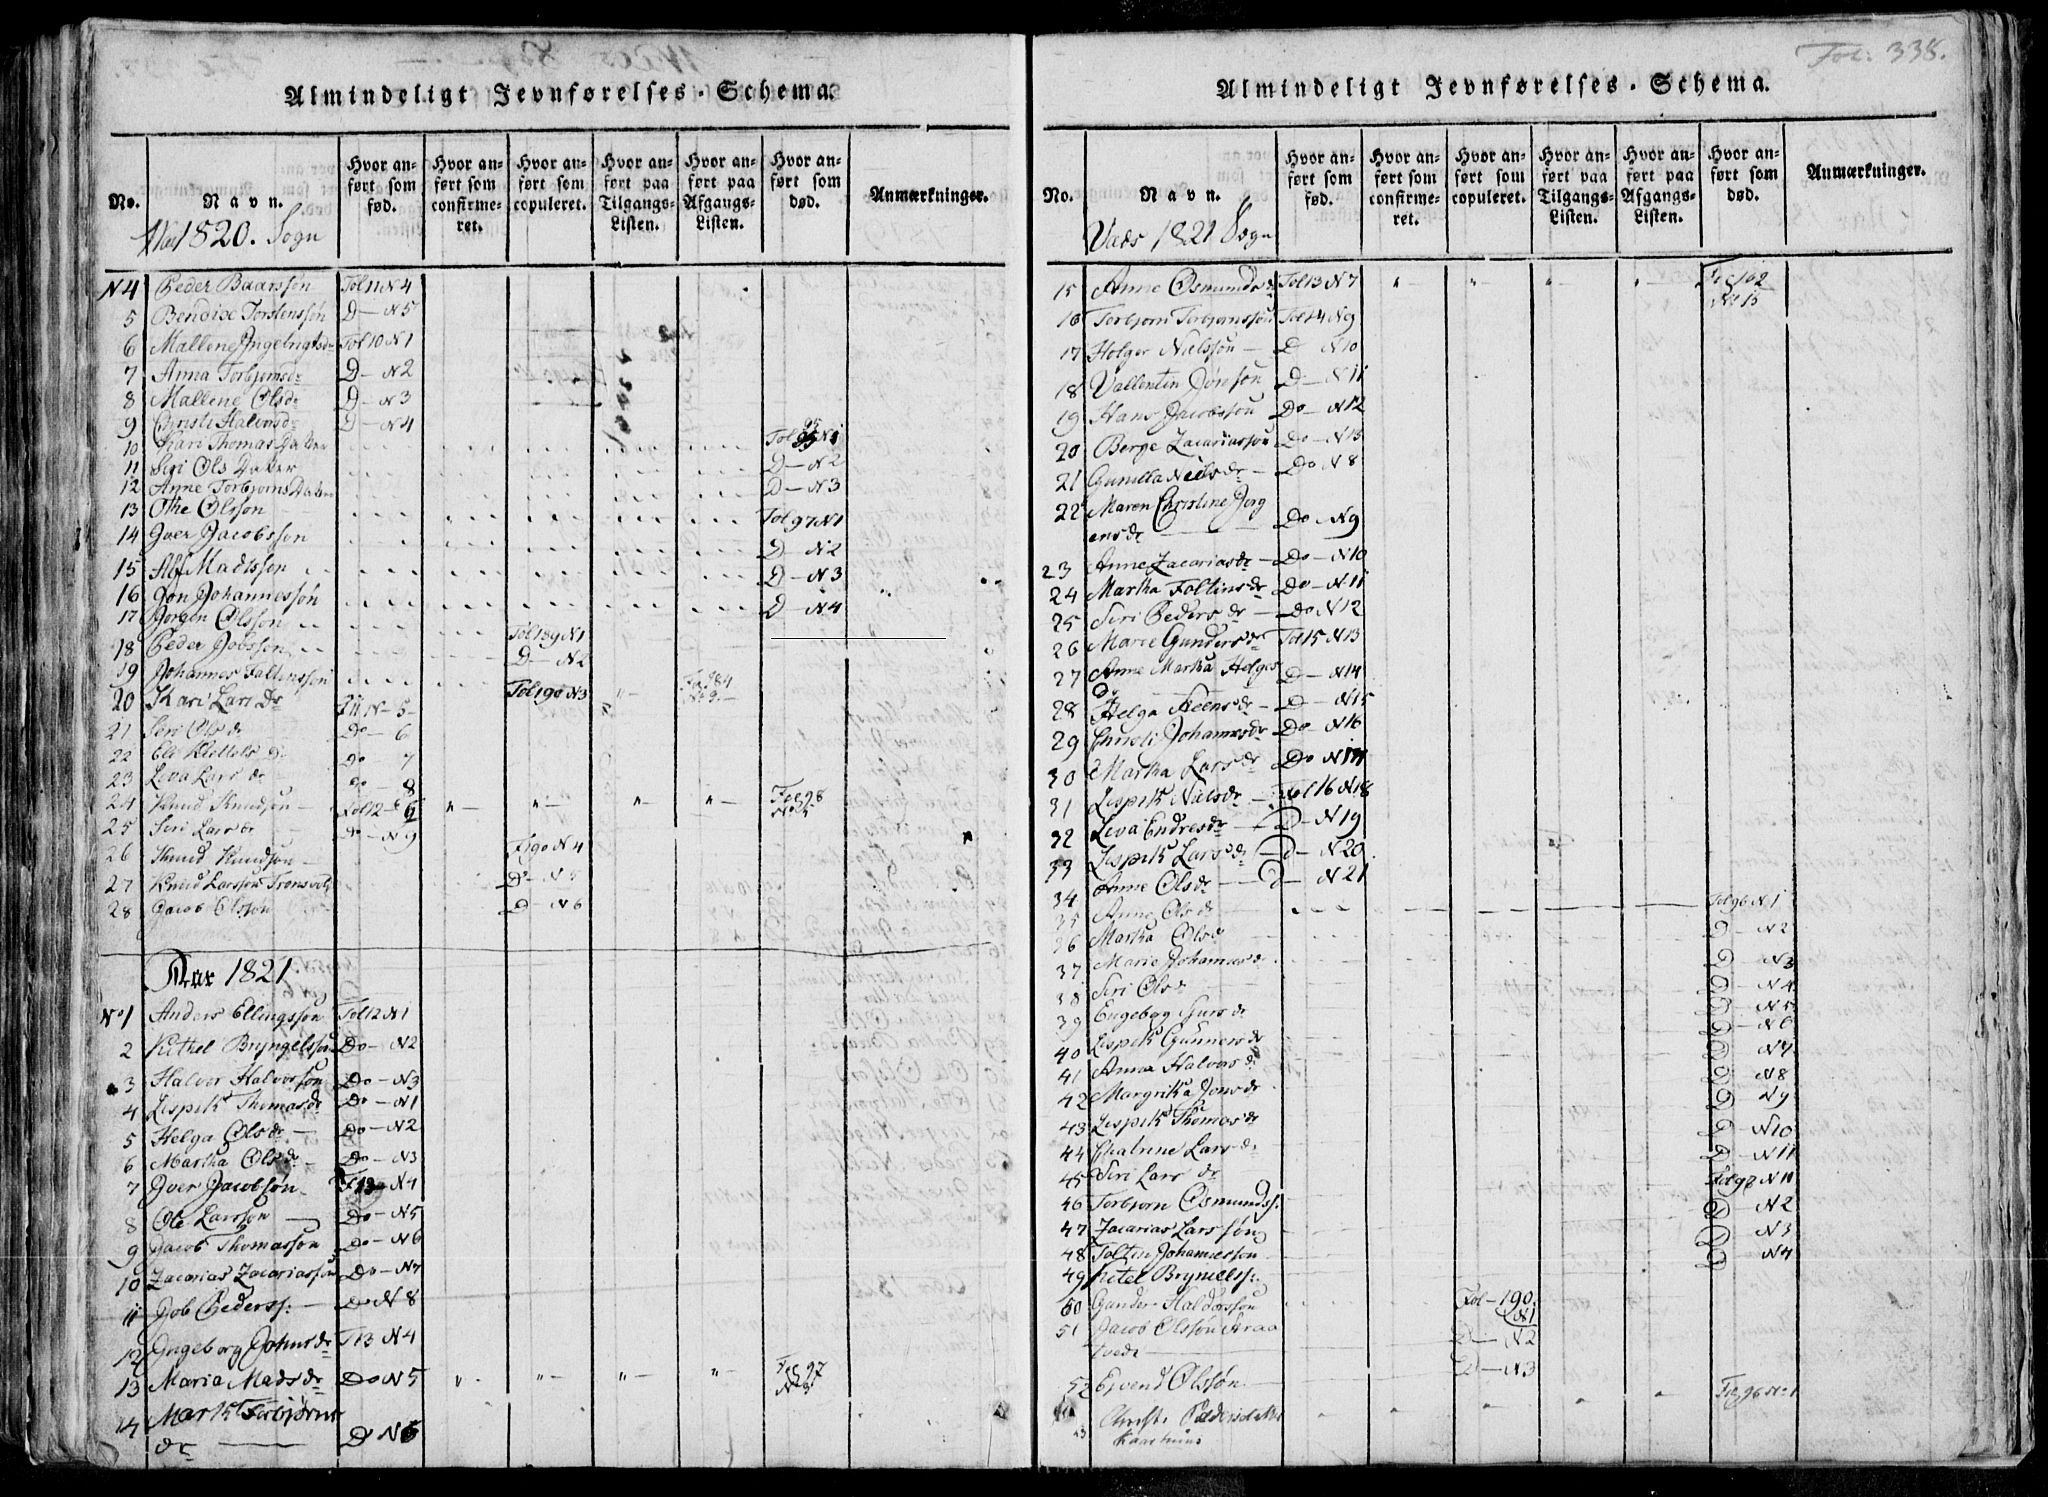 Almindeligt Jevnførelses-Schema.
No.
Navn.
Hvor anført som fød.
Hvor anført som confirmeret.
Hvor anført som copuleret.
Hvor anført paa Tilgangs-Listen.
Hvor anført paa Afgangs-Listen.
Hvor anført som død.
Anmærkninger.
1820. Sogn
N4 Peder Baarsson Fol 11 N4
5 Bendixe Torstensson D— N5
6 Mallene Fol 10 N1
7 Anna Torbjornsdr D— N2
8 Mallene Olsdr D— N3
9 Christi Halvorsd D— N4
10 Kari Thomas Datter
11 Siri Ols Datter D— N2
12 Anne Torbjorns Datter D— N3
13 Olsson Fol 97 N1
14 Iver Jacobsson D N2
15 Madsson D— N3
16 Jon Johannesson D— N4
17 Jorgen Olsson Fol 189 N1
18 Peder Jobsson D— N2
19 Johannes Faltinsson
20 Kari Lars Dr Fol 190 N3
21 Siri Ols dr Do— 6
22 dr Do— 7
23 Leva Lars dr do— 8
24 Knud Knudson— Fol 12— " — "— "— "— Fol 98
25 Siri Lars dr Do— N9
26 Knud Knudson— F 190 N4
27 Knud Larsson D— N5
28 Jacob Olsson D— N6
Aar 1821
No 1 Anders Ellingsson Fol 12 N1
2 Kittel Bryngelsson Do— N2
3 Halvor Halvorsson Do— N3
4 Lispik Thomasdr Do— N1
5 Helga Olsdr— Do— N2
6 Martha Olsdr Do— N3
7 Iver Jacobson F 13 N4
8 Ole Larsson— Do— N5
9 Jacob Thomasson Do— N6
10 Zacarias Zacariasson Do— N7
11 Job Peders:— Do N8
12 Ingeborg Johnsdr F 13 N4
13 Maria Madsdr Do N5 " "— "— " Fol 97
14 Torbjorns
dr— D N6
Fol: 338.
Almindeligt Jevnførelses-Schema.
No.
Navn.
Hvor anført som fød.
Hvor anført som confirmeret.
Hvor anført som copuleret.
Hvor anført paa Tilgangs-Listen.
Hvor anført paa Afgangs-Listen.
Hvor anført som død.
Anmærkninger.
Vads 1821 Sogn
15 Anne Osmunds dr Fol 13 N7 "— "— "— "— Fol 102
No 15
16 Torbjorn Torbjornsson Fol 14 N9
17 Holger Nielsson— D N10
18 Vallentin D— N11
19 Hans Jacobsson Do— N12
20 Berge Zacariasson Do— N13
21 Gunilla Nielsdr— Do N8
22 Maren Christine Jorg
ensdr Do— N9
23 Anne Zacariasdr— Do— N10
24 Martha Foltinsdr Do— N11
25 Siri Pedersdr— Do N12
26 Marie Gundersdr Fol 15 N13
27 Anne Martha Helges
Dr D— N14
28 Helga Steensdr— D— N15
29 Christi Johannesdr Do N16
30 Martha Larsdr Do N17
31 Lispik Nielsdr— Fol 16 N18
32 Leva Endresdr— D— N19
33 Lispik Larsdr— D— N20
34 Anne Olsdr— D— N21
35 Anne Olsdr Fol 96 N1
36 Martha Olsdr N2
37 Marie Johannesdr N3
38 Siri Olsdr N4
39 Engeborg dr N5
40 Lispik Gunners dr N6
41 Anna Halvors dr N7
42 Margrika Jons dr N8
43 Lispik Thomas dr N9
44 Chatrine Lars dr N10
45 Siri Lars dr N11
46 Torbjorn Osmundss:
47 Zacarias Larsson N2
48 Foltin Johannesson N3
49 Kitel Bryniels: N4
50 Gunder Haldorsson Fol— 190
N1
51 Jacob Olsson
tvedt— D— N2
52 Eyvend Olsson D— N3